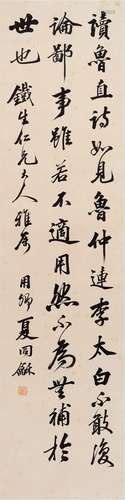 讀魯直詩如見魯仲連李太白不敢復
論鄙事雖若不適用然不為無補於
世也
鐵生仁兄大人雅屬
用卿夏同龢